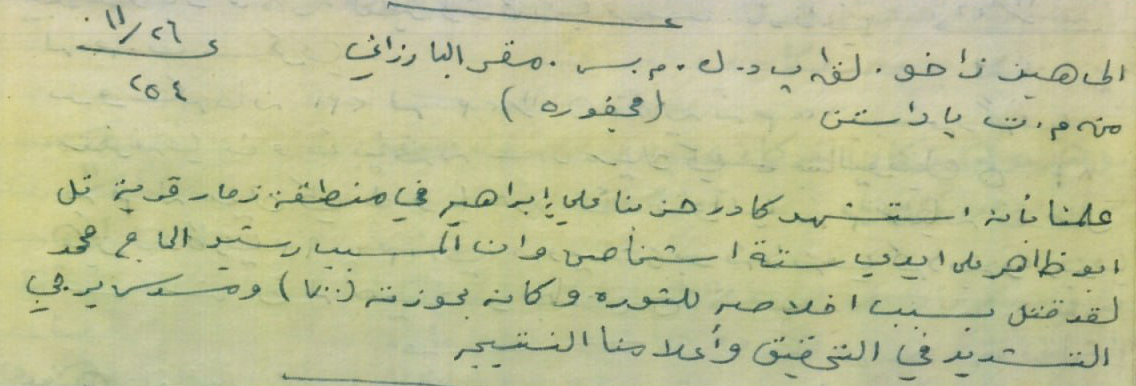 ١١/٢٦
٢٥٤
الى هيز زاخو. لق١ ب د. ك. م. س. مقر البارزاني
من م. ت پاراستن (مجفوره)
علمنا بأنه استشهد كادر حزبنا علي إبراهيم في منطقة زمار قرية تل
ابو ظاهر على ايدي ستة اشخاص وان المسبب رشيد الحاج محمد
لقد قتل بسبب اخلاصه للثوره وكانه بحوزته (٧٠٠) ومسدس يرجى
التشديد في التحقيق وأعلامنا النتيجه